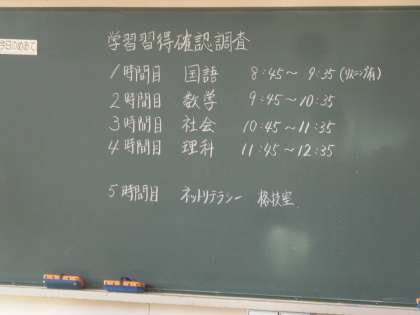 今日のめあて
学習習得確認調査
1時間目 国語 8:45～9:35(リスニング有)
2時間目 数学 9:45～10:35
3時間目 社会 10:45～11:35
4時間目 理科 11:45～12:35
5時間目 ネットリテラシー 格技室